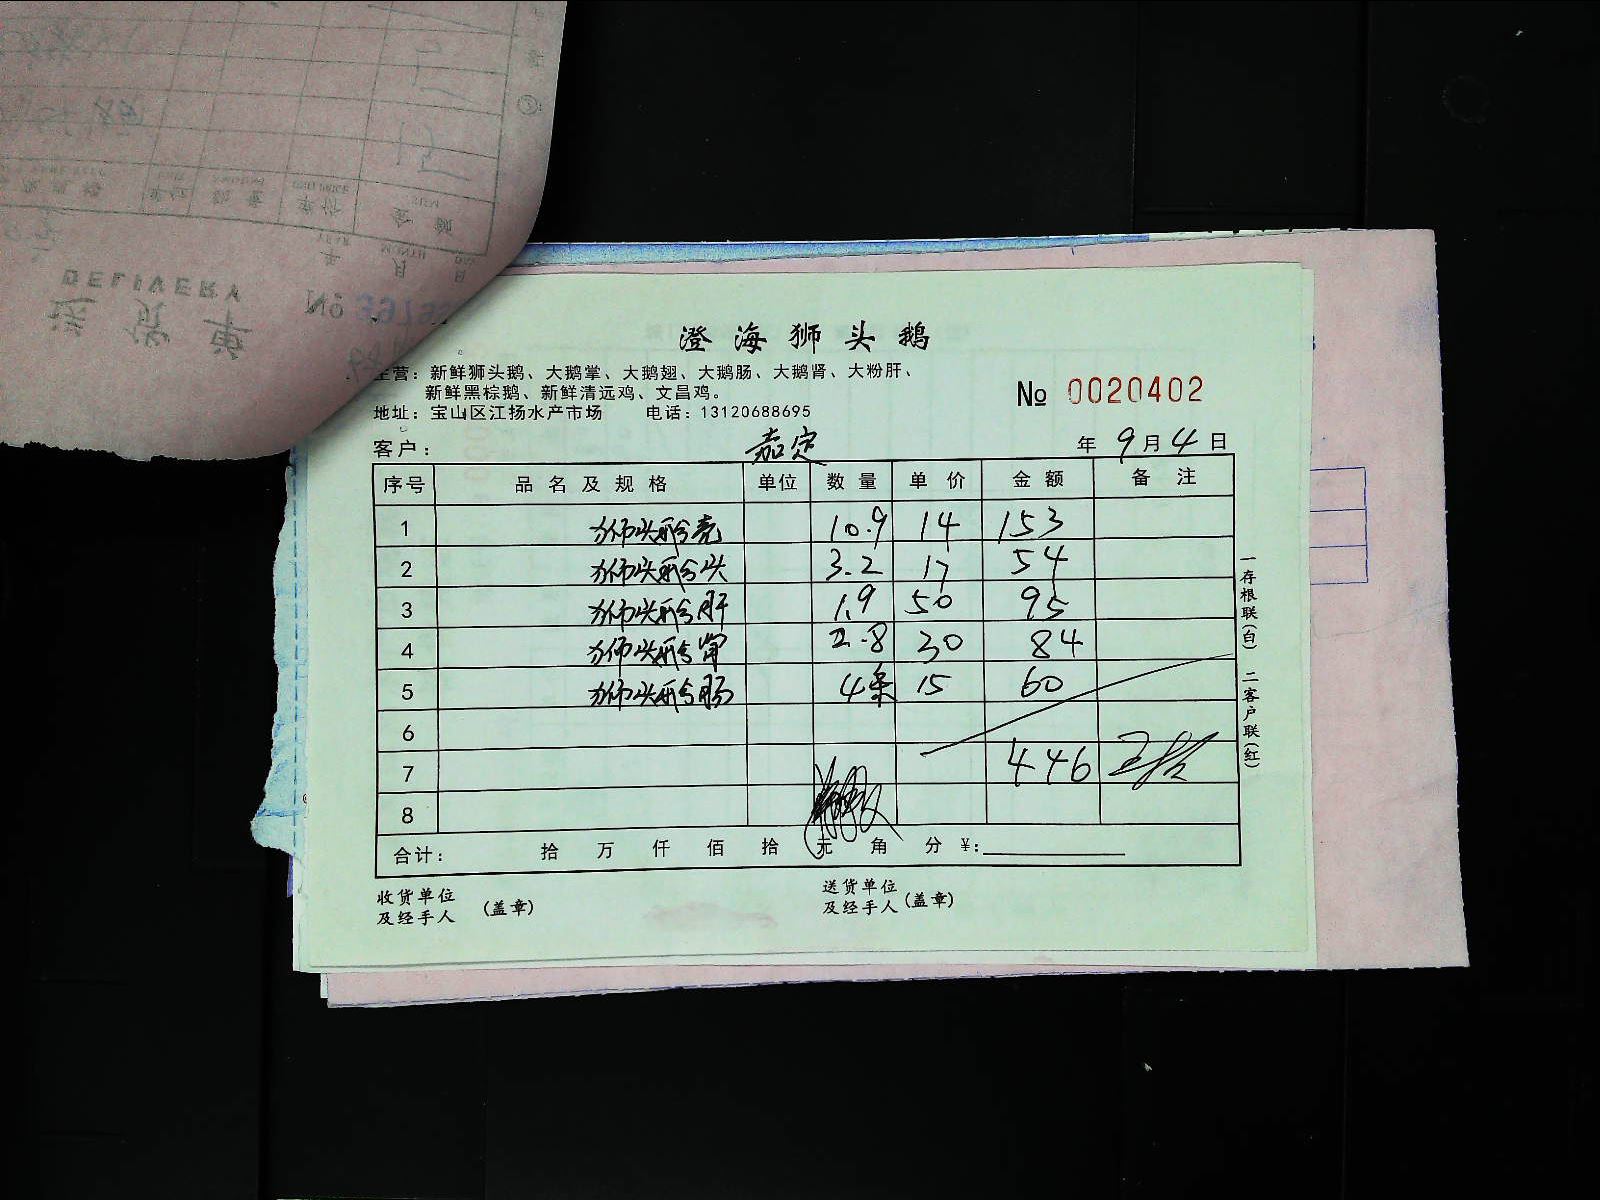 澄海狮头鹅
主营：新鲜狮头鹅、大鹅掌、大鹅翅、大鹅肠、大鹅肾、大粉肝、
新鲜黑棕鹅、新鲜清远鸡、文昌鸡。
№ 0020402
地址：宝山区江扬水产市场 电话：13120688695
客户： 嘉定 年 9 月 4 日
序号 品名及规格 单位 数量 单价 金额 备注
1 狮头鹅壳 10.9 14 153
2 狮头鹅头 3.2 17 54
3 狮头鹅肝 1.9 50 95
4 狮头鹅 2.8 30 84
5 狮头鹅肠 4条 15 60
6
7 446
8
合计： 拾 万 仟 佰 拾 元 角 分 ¥:
收货单位
及经手人 (盖章)
送货单位
及经手人 (盖章)
一存根联(白) 二客户联(红)
送货单
DELIVERY